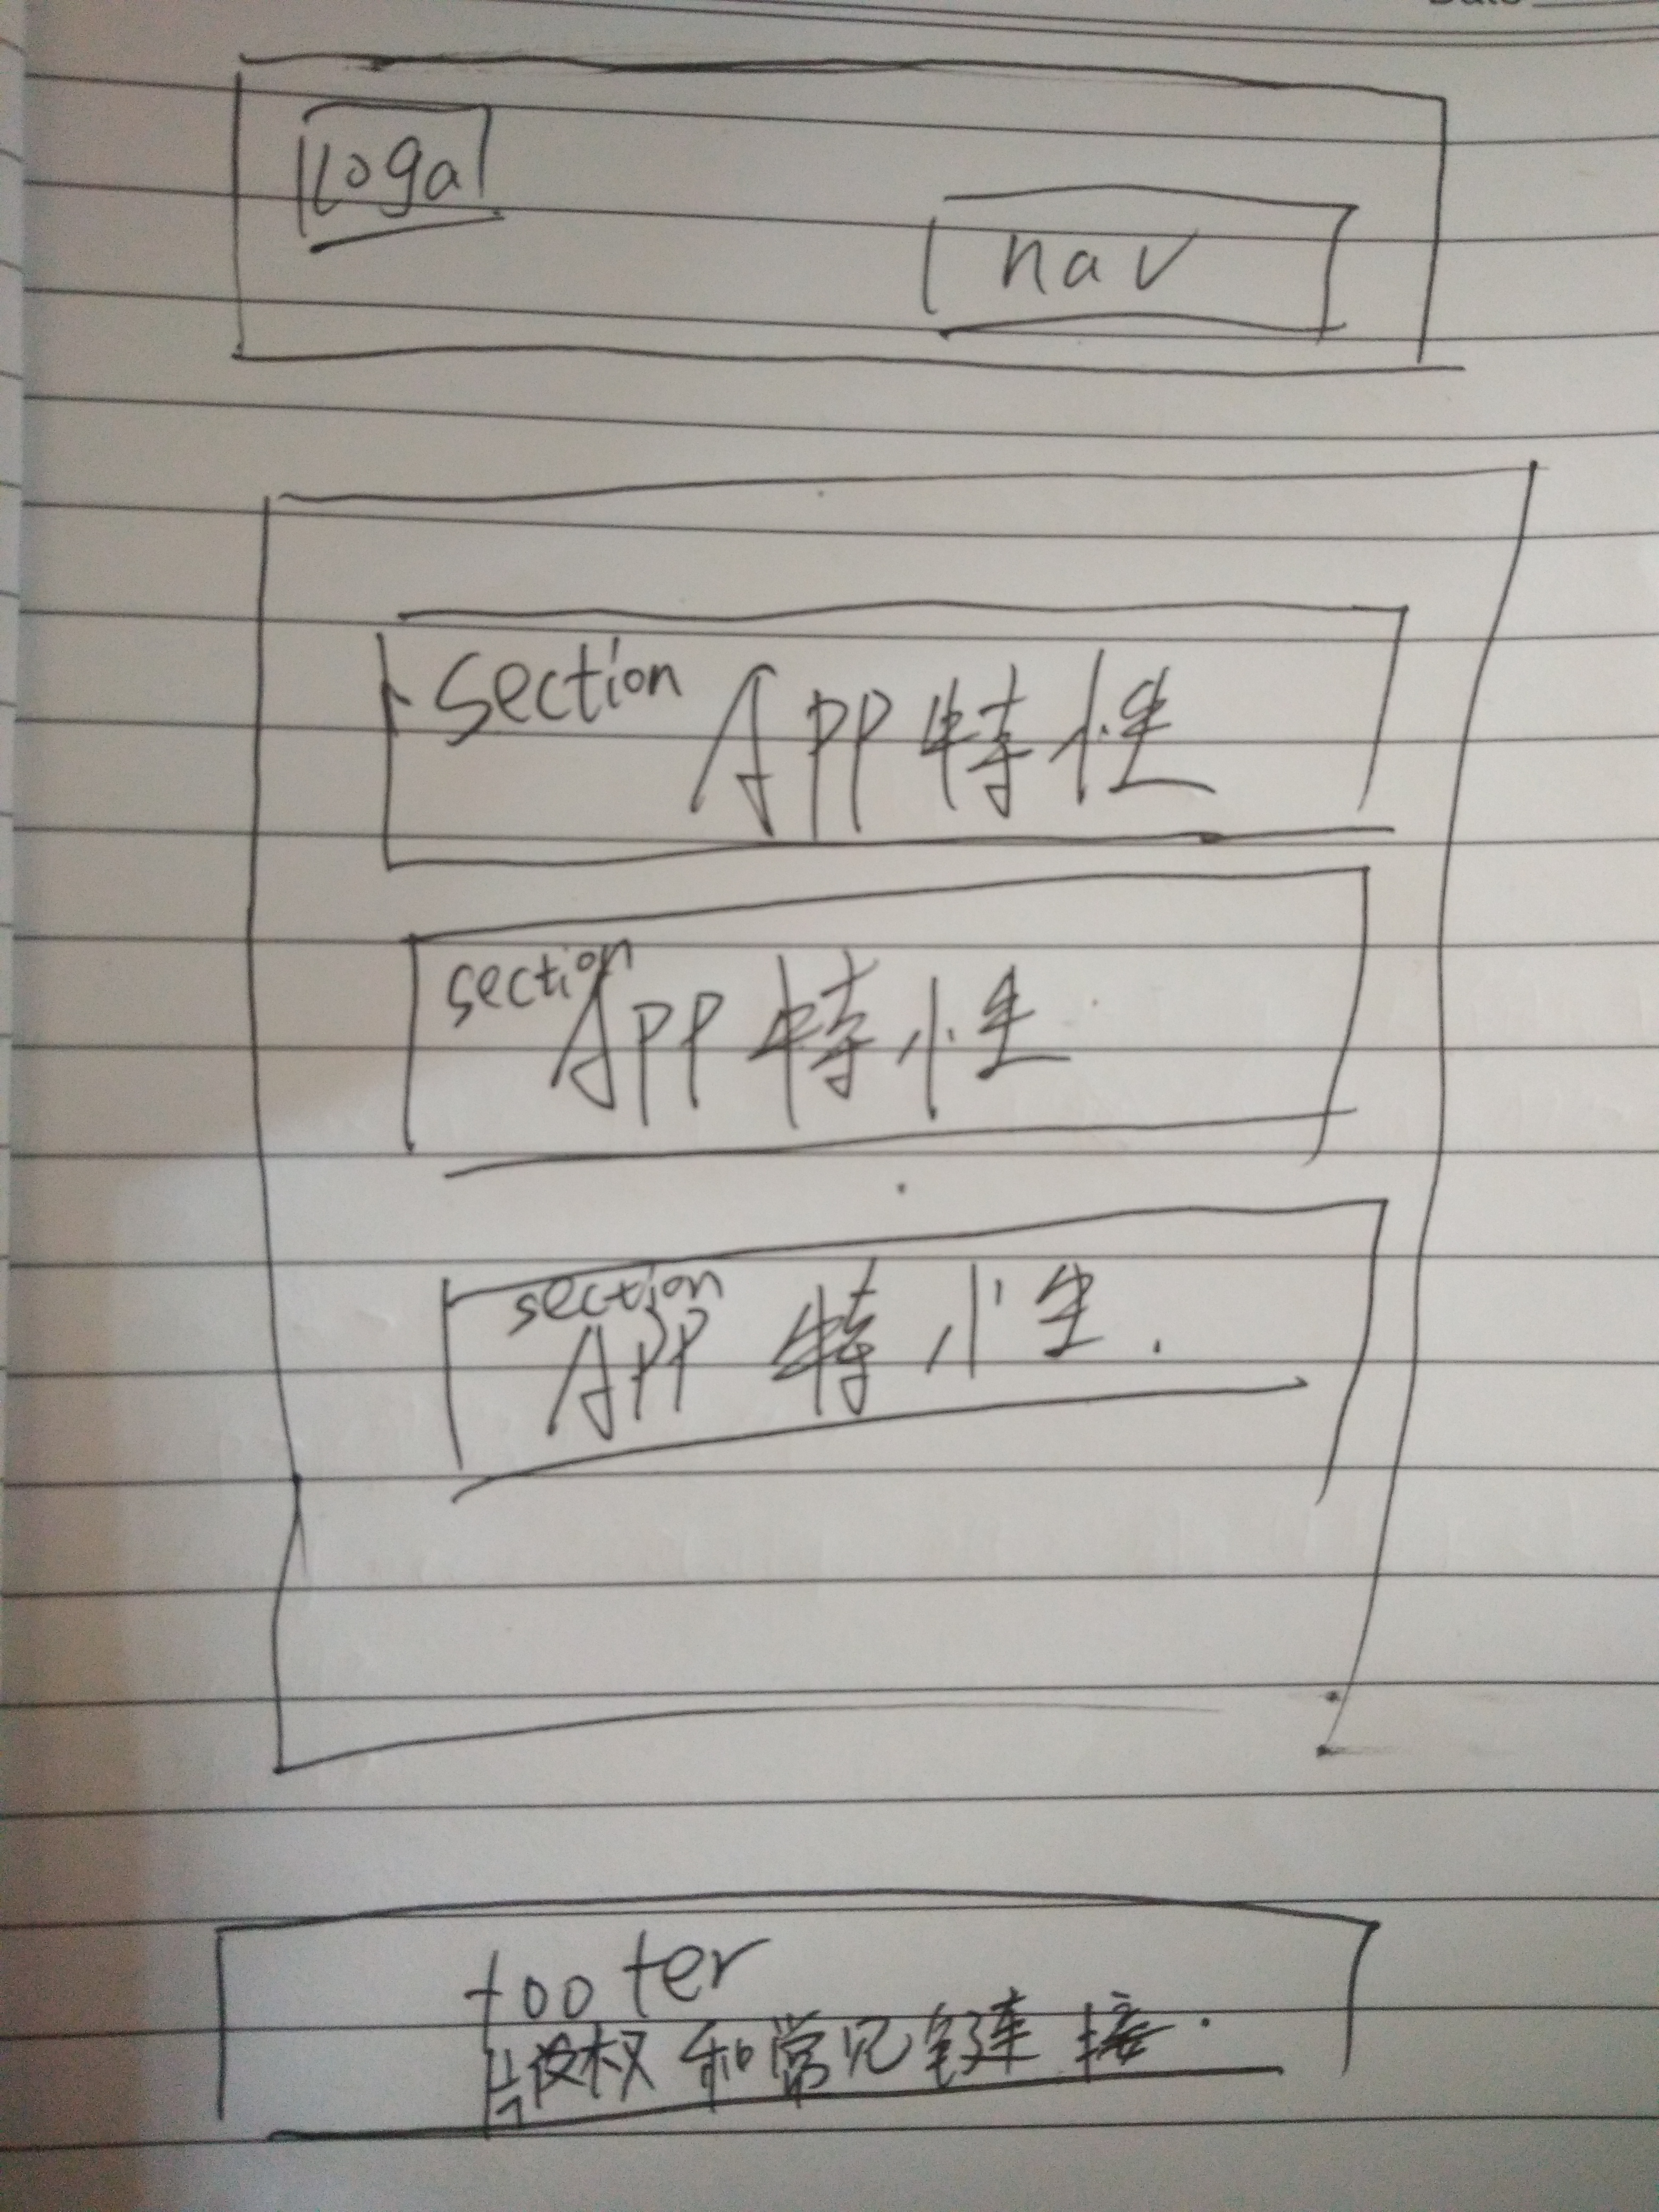 Loga
nav
section
APP特性
section
APP特性
section
APP特性.
footer
版权和常见链接.